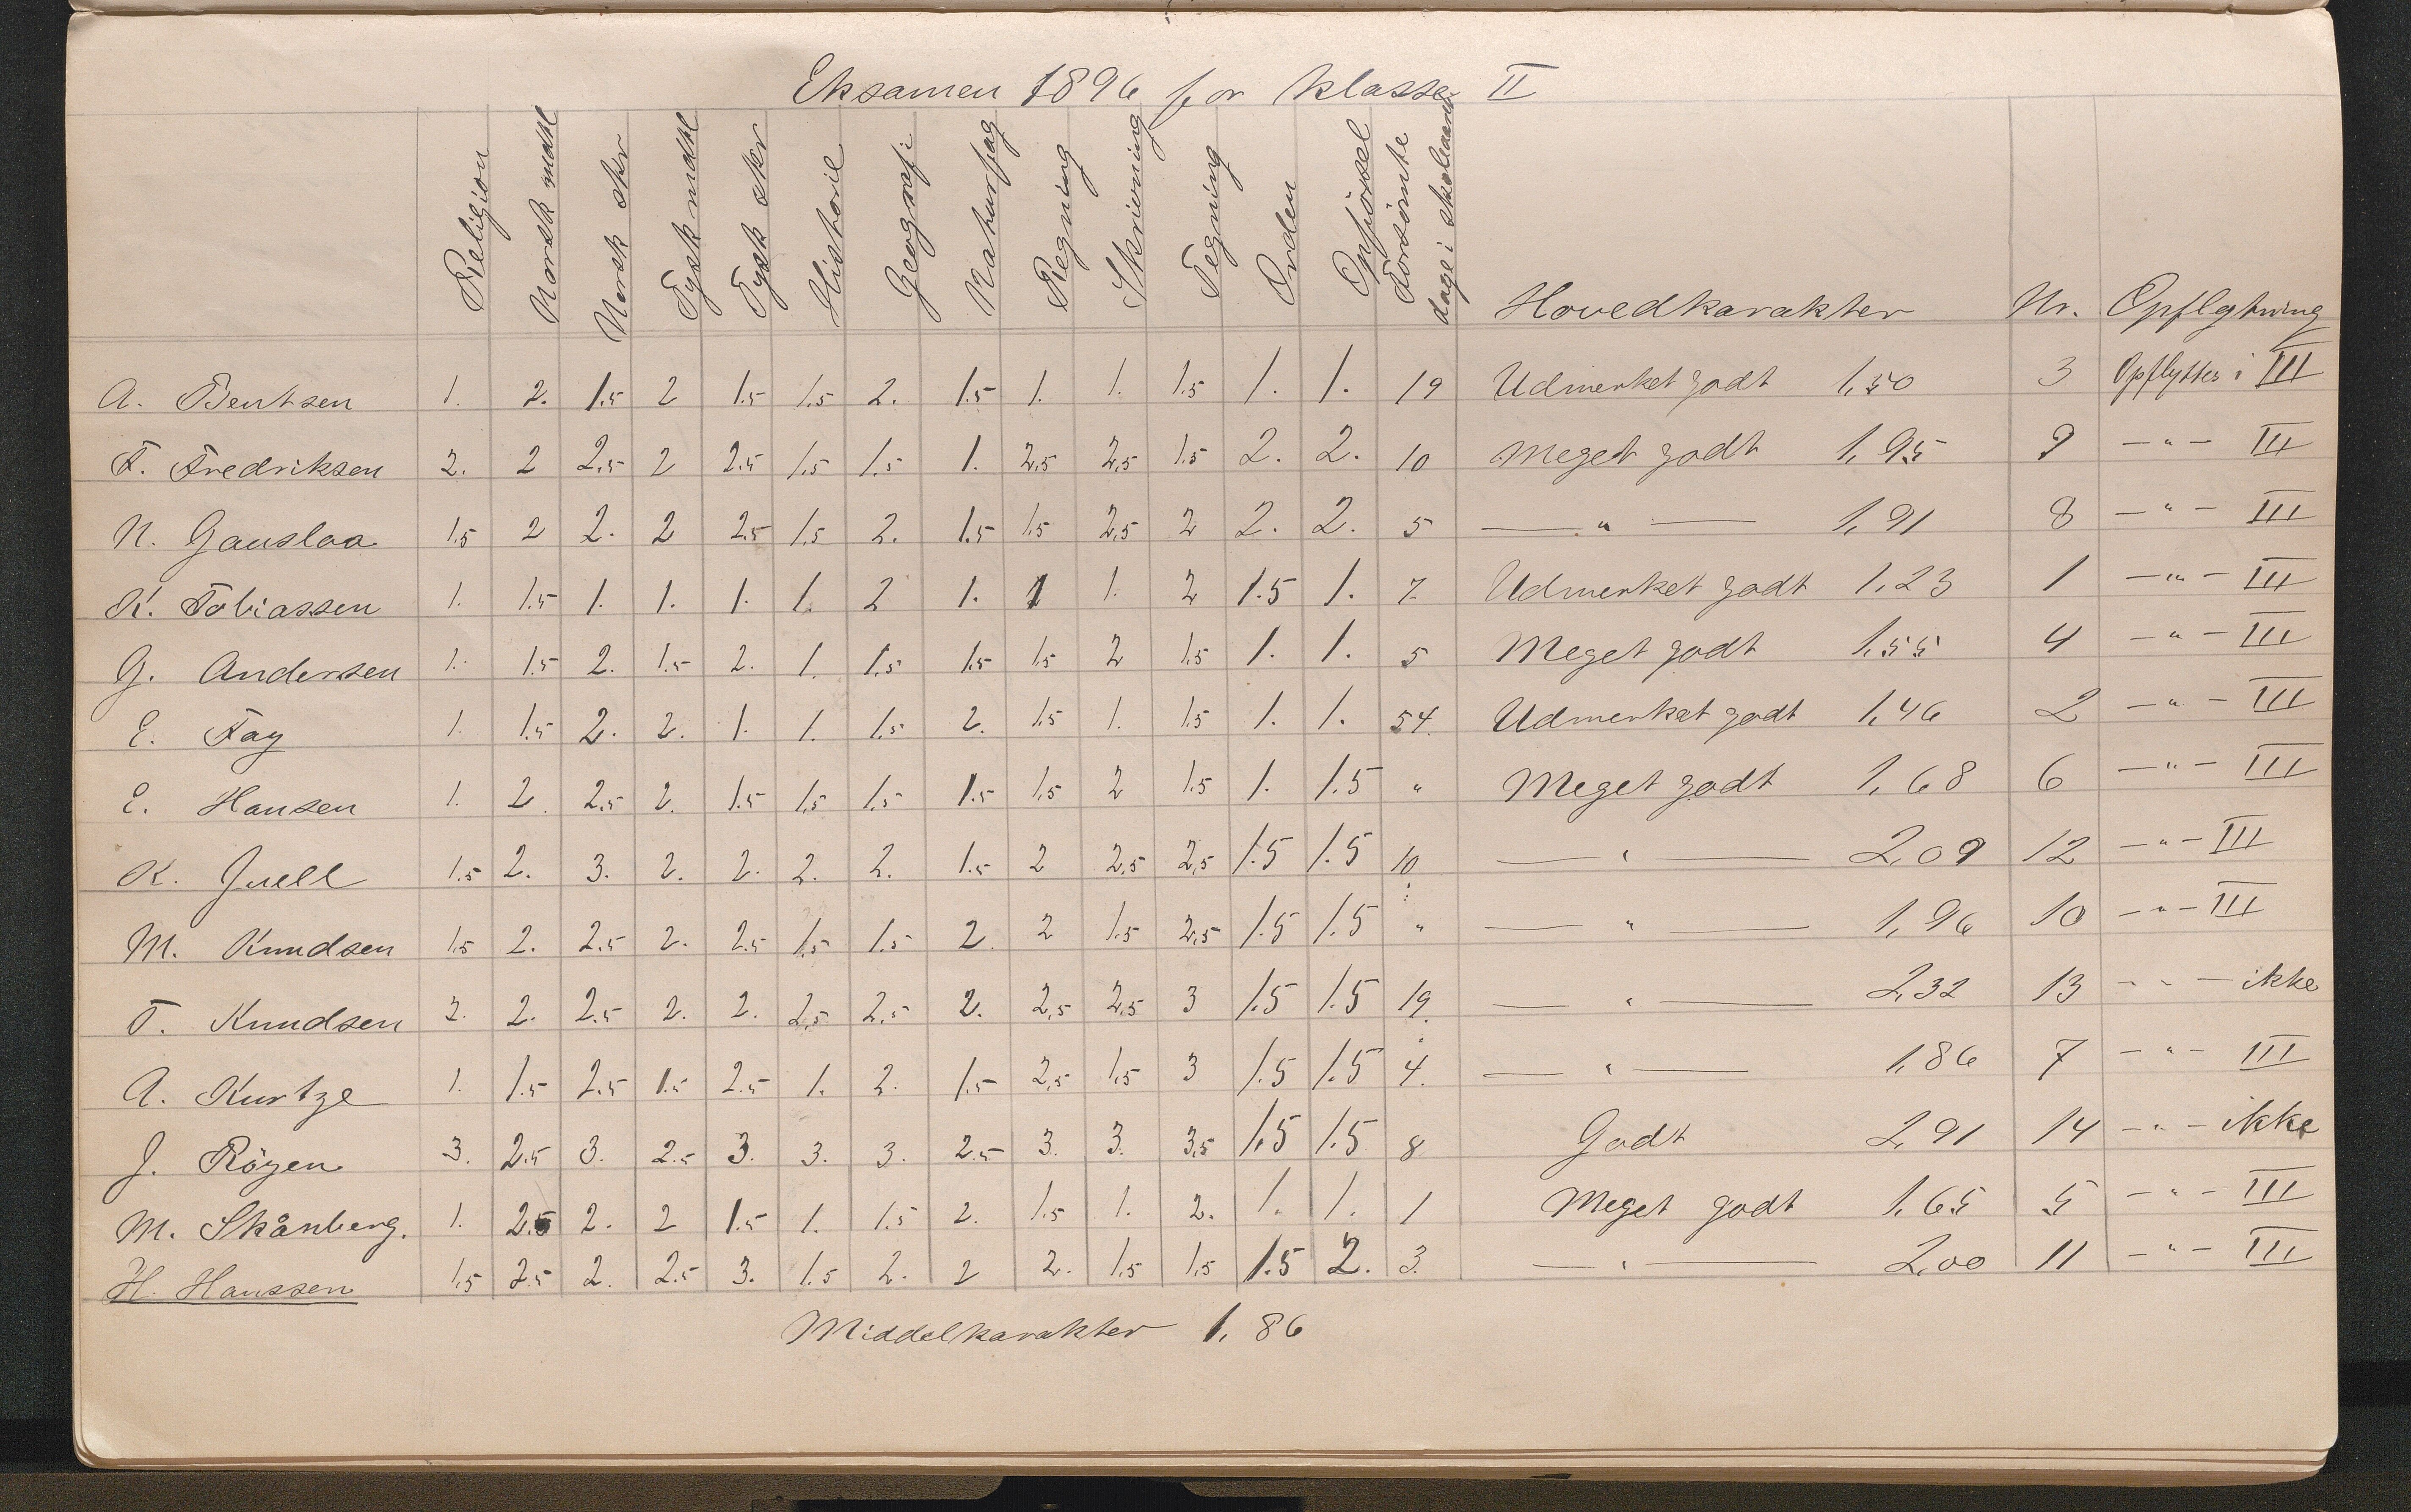 Eksamen 1896 for klasse II
Religion Norsk mdtl Norsk skr Tysk mdtl Tysk skr Historie Geografi Naturfag Regning Skrivning Tegning Orden Opførsel Forsømte dage i skoleaaret Hovedkarakter Nr. Opflytning
A. Bentsen 1. 2. 1.5 2 1.5 1.5 2. 1.5 1. 1. 1.5 1. 1. 19 Udmerket godt 1,50 3 Opflyttes i III
F. Fredriksen 2. 2 2.5 2 2.5 1.5 1.5 1. 2,5 2,5 1.5 2. 2. 10 Meget godt 1,95 9 — " — III
N. Gauslaa 1.5 2 2. 2 2.5 1.5 2. 1.5 1.5 2,5 2 2. 2. 5 — " — 1,91 8 — " — III
K. Tobiassen 1. 1.5 1. 1. 1. 1. 2 1. 1 1. 2 1.5 1. 7. Udmerket godt 1,23 1 — " — III
G. Andersen 1. 1.5 2. 1.5 2. 1. 1.5 1.5 1.5 2 1.5 1. 1. 5 Meget godt 1,55 4 — " — III
E. Fay 1. 1.5 2. 2. 1. 1. 1.5 2. 1.5 1. 1.5 1. 1. 54. Udmerket godt 1,46 2 — " — III
E. Hansen 1. 2. 2.5 2. 1.5 1.5 1.5 1.5 1.5 2 1.5 1. 1.5 " Meget godt 1,68 6 — " — III
K. Juell 1.5 2. 3. 2. 2. 2. 2. 1.5 2 2,5 2,5 1.5 1.5 10 — " — 2,09 12 — " — III
M. Knudsen 1.5 2. 2.5 2. 2.5 1.5 1.5 2. 2 1.5 2,5 1.5 1.5 " — " — 1,96 10 — " — III
T. Knudsen 3. 2. 2.5 2. 2. 2,5 2.5 2. 2,5 2,5 3 1.5 1.5 19. — " — 2,32 13 — " — ikke
A. Kurtze 1. 1.5 2.5 1.5 2.5 1. 2. 1.5 2,5 1.5 3 1.5 1.5 4. — " — 1,86 7 — " — III
J. Røyen 3. 2.5 3. 2.5 3. 3. 3. 2.5 3. 3. 3,5 1,5 1.5 8 Godt 2,91 14 — " — ikke
M. Skånberg. 1. 2.5 2. 2 1.5 1. 1.5 2. 1.5 1. 2. 1. 1. 1 Meget godt 1,65 5 — " — III
H. Hanssen 1.5 2.5 2. 2.5 3. 1.5 2. 2 2. 1.5 1.5 1.5 2. 3. — " — 2,00 11 — " — III
Middelkarakter 1,86